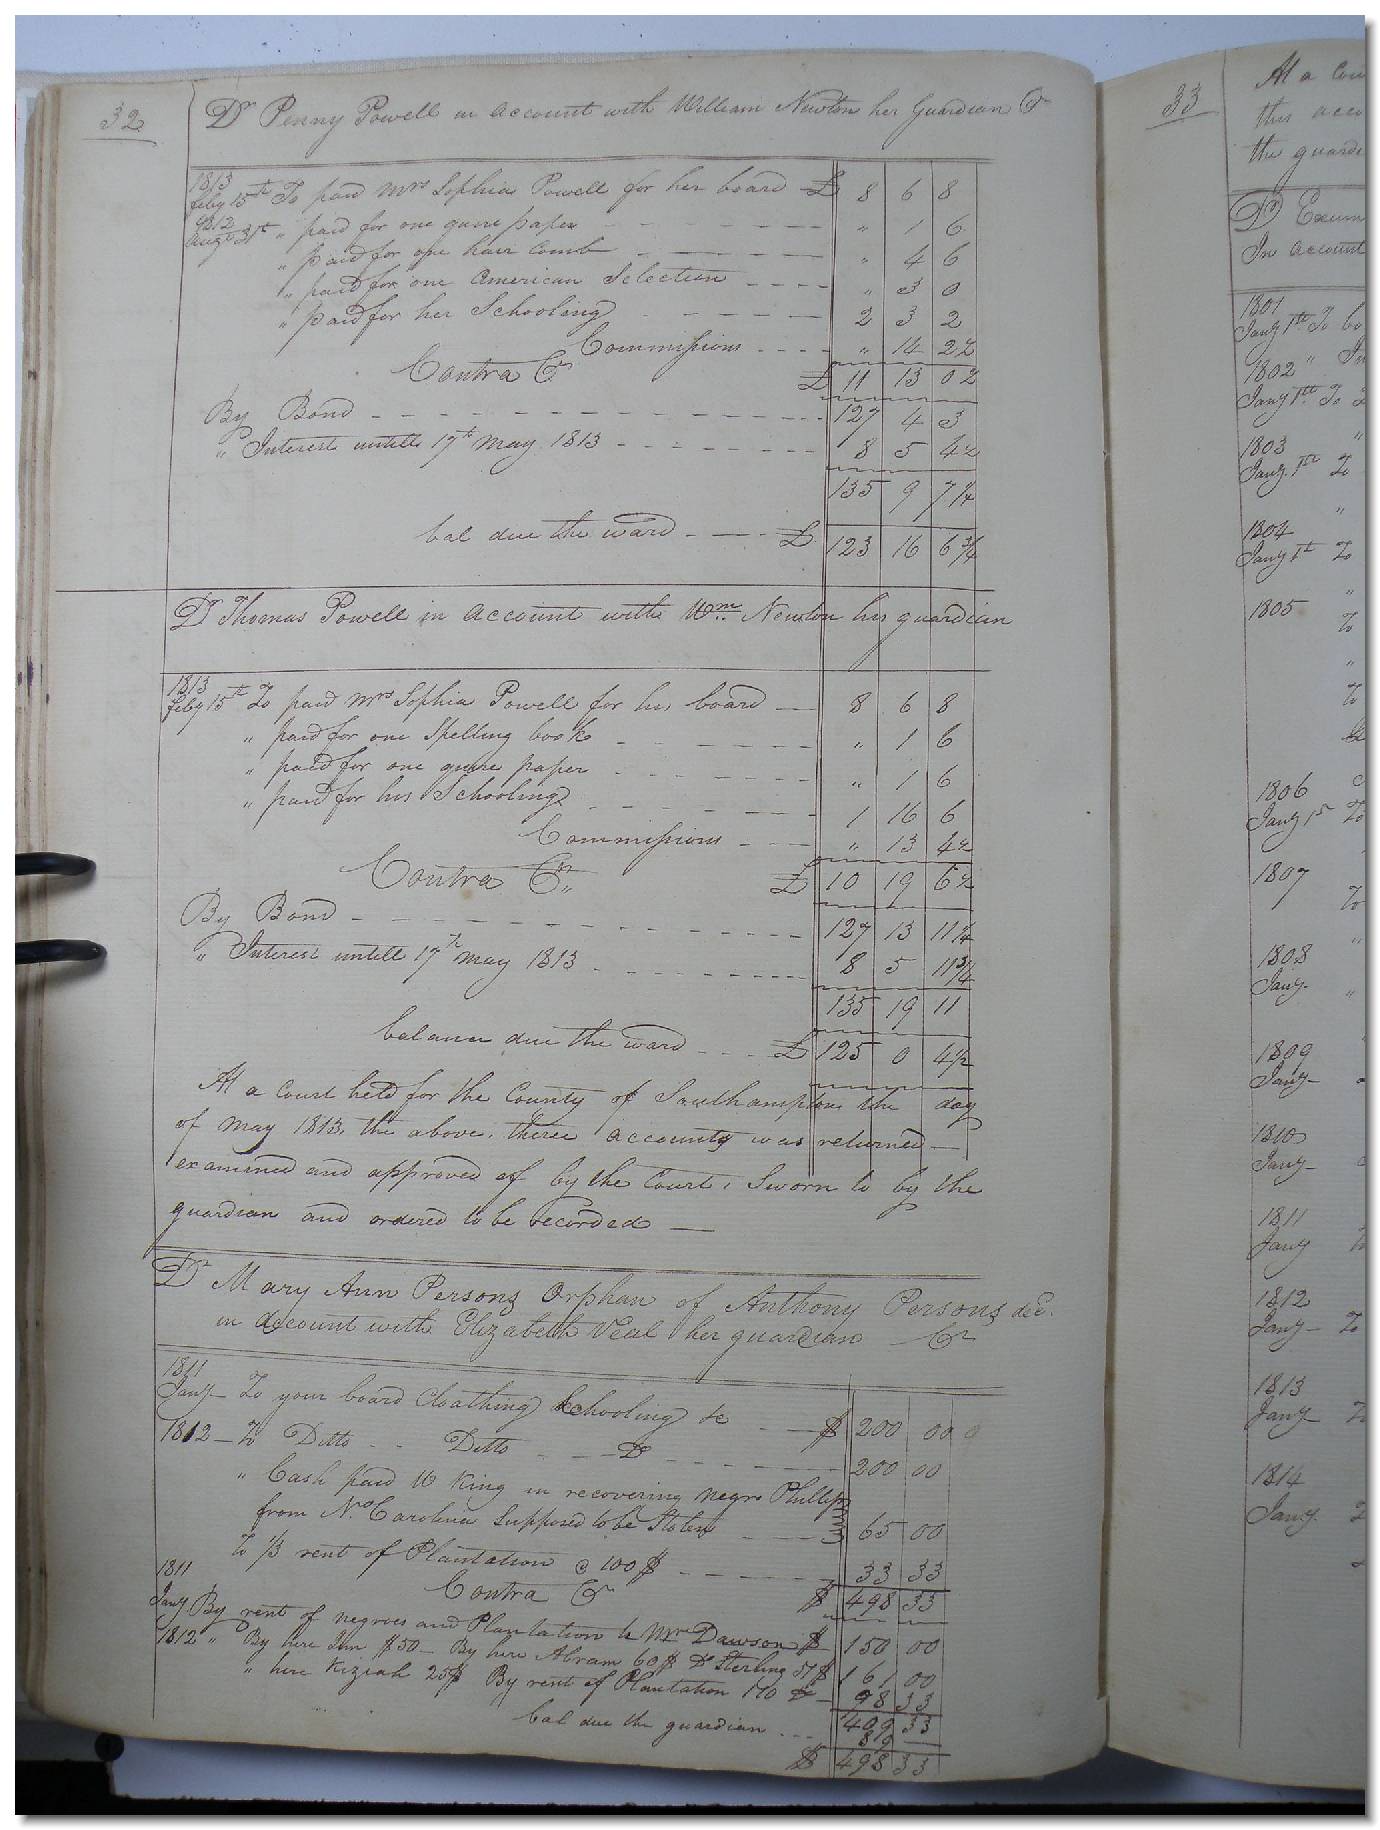 32
Dr Penny Powell in account with William Newton her Guardian Cr
1813
Feby 15th To paid Mrs Sophia Powell for her board £ 8 6 8
1812
Augt 31st " paid for one quire paper " 1 6
" paid for one hair Comb " 4 6
" paid for one American Selection " 3 0
" paid for her Schooling 2 3 2
Commissions " 14 2½
Contra Cr £ 11 13 0½
By Bond 127 4 3
" Interest untill 17th May 1813 8 5 4½
135 9 7¼
bal due the ward £ 123 16 6¾
Dr Thomas Powell in account with Wm Newton his guardian
1813
Feby 15th To paid Mrs Sophia Powell for his board 8 6 8
" paid for one Spelling book " 1 6
" paid for one quire paper " 1 6
" paid for his Schooling 1 16 6
Commissions " 13 4½
Contra Cr £ 10 19 6½
By Bond 127 13 11¼
" Interest untill 17th May 1813 8 5 11¾
135 19 11
balance due the ward £ 125 0 4½
At a Court held for the County of Southampton the day
of May 1813, the above, these accounts was returned
examined and approved of by the Court, Sworn to by the
guardian and ordered to be recorded
Dr Mary Ann Persons Orphan of Anthony Persons dec.
in account with Elizabeth Veal her guardian Cr
1811
Jany To your board Cloathing Schooling &c $ 200 00
1812 To Ditto Ditto Do 200 00
" Cash paid W King in recovering negro Phillip
from No Carolina Supposed to be Stolen 65 00
To 1/3 rent of Plantation @ 100$ 33 33
Contra Cr $ 498 33
1811
Jany By rent of negroes and Plantation to Mr Dawson $ 150 00
1812 " By hire Jim $50 By hire Abram 60$ Do Sterling 51$ 161 00
" hire Kiziah 25$ By rent of Plantation 110 98 33
409 33
bal due the guardian 89
$ 498 33
33
At a Cou
this acco
the guardi
Dr Exum
In account
1801
Jany 1st To bo
1802 " In
Jany 1st To
1803 "
Jany 1st To
"
1804
Jany 1st To
"
1805 To
"
To
1806
Jany 1st To
1807
To
"
1808
Jany "
1809
Jany
1810
Jany
1811
Jany
1812
Jany To
1813
Jany
1814
Jany